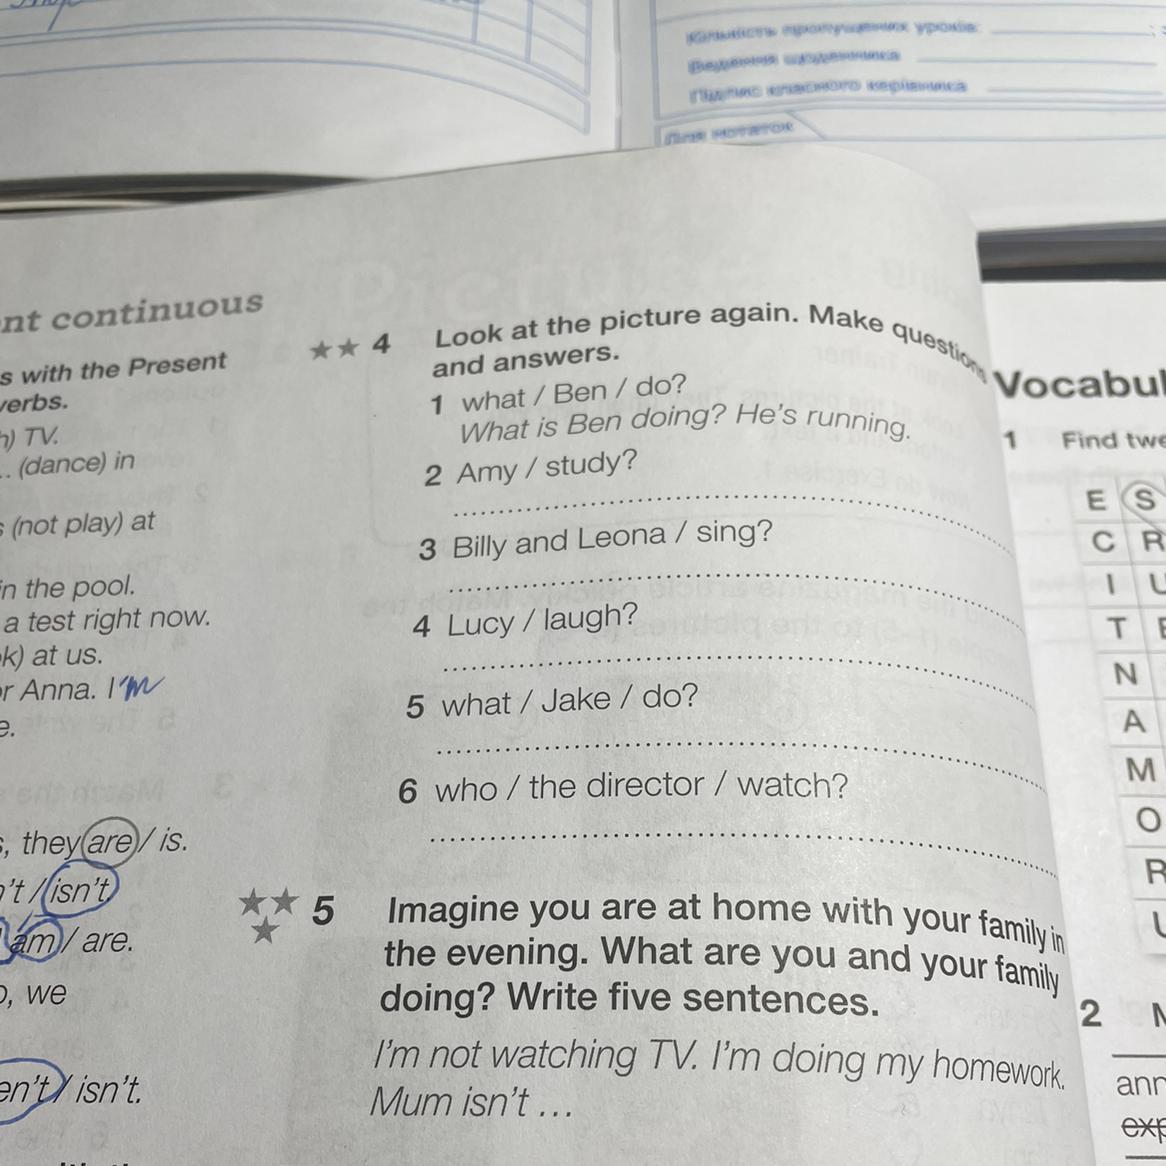 Кількість пропущених уроків:
Ведення щоденника
Підпис класного керівника
Для нотаток
nt continuous
s with the Present
verbs.
h) TV.
.. (dance) in
s (not play) at
in the pool.
a test right now.
k) at us.
r Anna. I'm
e.
s, they are / is.
n't / isn't.
am / are.
o, we
en't / isn't.
★★ 4 Look at the picture again. Make questions
and answers.
1 what / Ben / do?
What is Ben doing? He's running.
2 Amy / study?
3 Billy and Leona / sing?
4 Lucy / laugh?
5 what / Jake / do?
6 who / the director / watch?
★★★ 5 Imagine you are at home with your family in
the evening. What are you and your family
doing? Write five sentences.
I'm not watching TV. I'm doing my homework.
Mum isn't ...
Vocabul
1 Find twe
E S
C R
I U
T
N
A
M
O
R
2
ann
exp